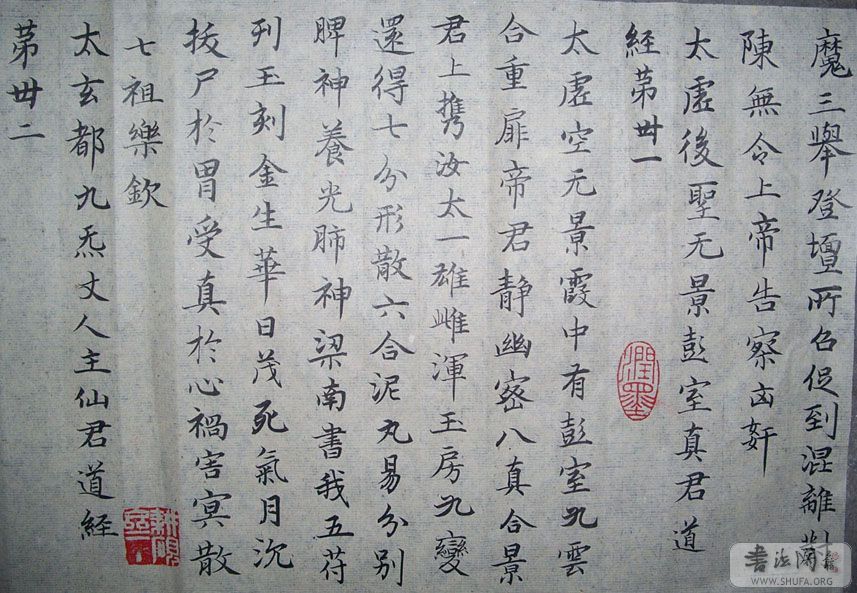 魔三舉登壇所召促到混離對
陳無令上帝告察凶奸
太虛後聖无景彭室真君道
經苐卅一
太虛空无景霞中有彭室九雲
合重扉帝君靜幽密八真合景
君上携汝太一雄雌渾玉房九變
還得七分形散六合泥丸易分別
脾神養光肺神梁南書我五苻
刋玉刻金生華日茂死氣月沉
拔尸於胃受真於心禍害冥散
七祖樂欽
太玄都九炁丈人主仙君道経
苐卅二
潤墨
書法网
WWW.SHUFA.ORG